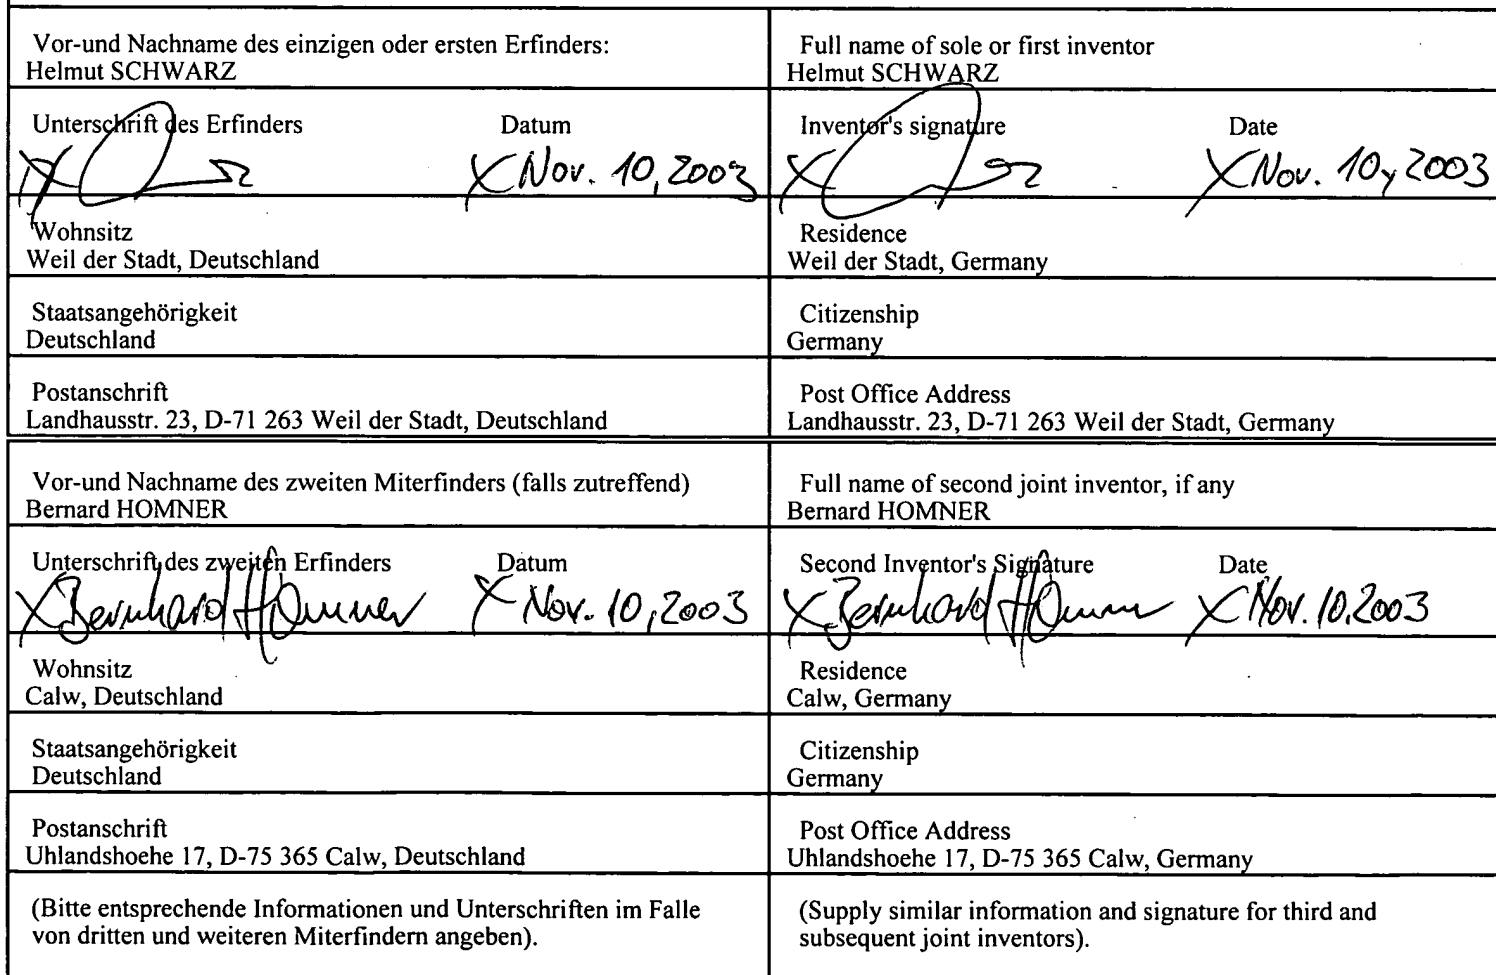 Vor-und Nachname des einzigen oder ersten Erfinders:
Helmut SCHWARZ
Full name of sole or first inventor
Helmut SCHWARZ
Unterschrift des Erfinders Datum
X Nov. 10, 2003
Inventor's signature Date
X Nov. 10, 2003
Wohnsitz
Weil der Stadt, Deutschland
Residence
Weil der Stadt, Germany
Staatsangehörigkeit
Deutschland
Citizenship
Germany
Postanschrift
Landhausstr. 23, D-71 263 Weil der Stadt, Deutschland
Post Office Address
Landhausstr. 23, D-71 263 Weil der Stadt, Germany
Vor-und Nachname des zweiten Miterfinders (falls zutreffend)
Bernard HOMNER
Full name of second joint inventor, if any
Bernard HOMNER
Unterschrift des zweiten Erfinders Datum
X Bernhard Homner X Nov. 10, 2003
Second Inventor's Signature Date
X Bernhard X Nov. 10. 2003
Wohnsitz
Calw, Deutschland
Residence
Calw, Germany
Staatsangehörigkeit
Deutschland
Citizenship
Germany
Postanschrift
Uhlandshoehe 17, D-75 365 Calw, Deutschland
Post Office Address
Uhlandshoehe 17, D-75 365 Calw, Germany
(Bitte entsprechende Informationen und Unterschriften im Falle
von dritten und weiteren Miterfindern angeben).
(Supply similar information and signature for third and
subsequent joint inventors).